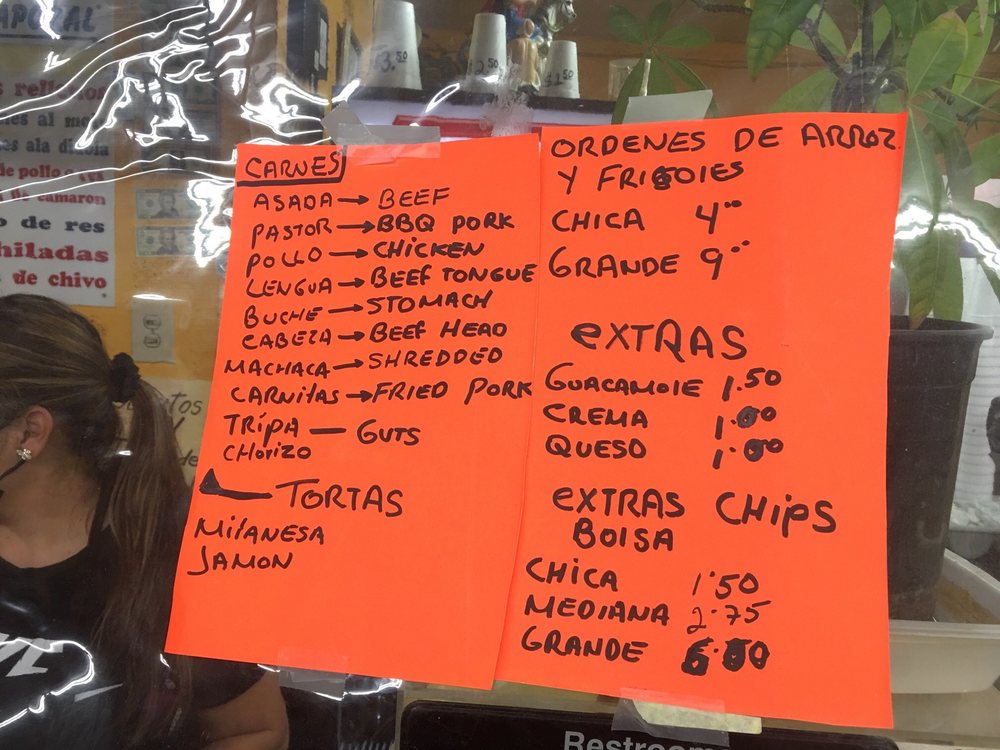 APORAL
$3.50
2.50
1.50
s rellenos
s ala diabla
de pollo
camaron
o de res
hiladas
de chivo
CARNES
ASADA → BEEF
PASTOR → BBQ PORK
POLLO → CHICKEN
LENGUA → BEEF TONGUE
BUCHE → STOMACH
CABEZA → BEEF HEAD
MACHACA → SHREDDED
CARNITAS → FRIED PORK
TRIPA — GUTS
CHORIZO
TORTAS
MILANESA
JAMON
ORDENES DE ARROZ
Y FRIJOLES
CHICA 4.00
GRANDE 9.00
EXTRAS
GUACAMOLE 1.50
CREMA 1.00
QUESO 1.00
EXTRAS CHIPS
BOLSA
CHICA 1.50
MEDIANA 2.75
GRANDE 6.00
Restroom